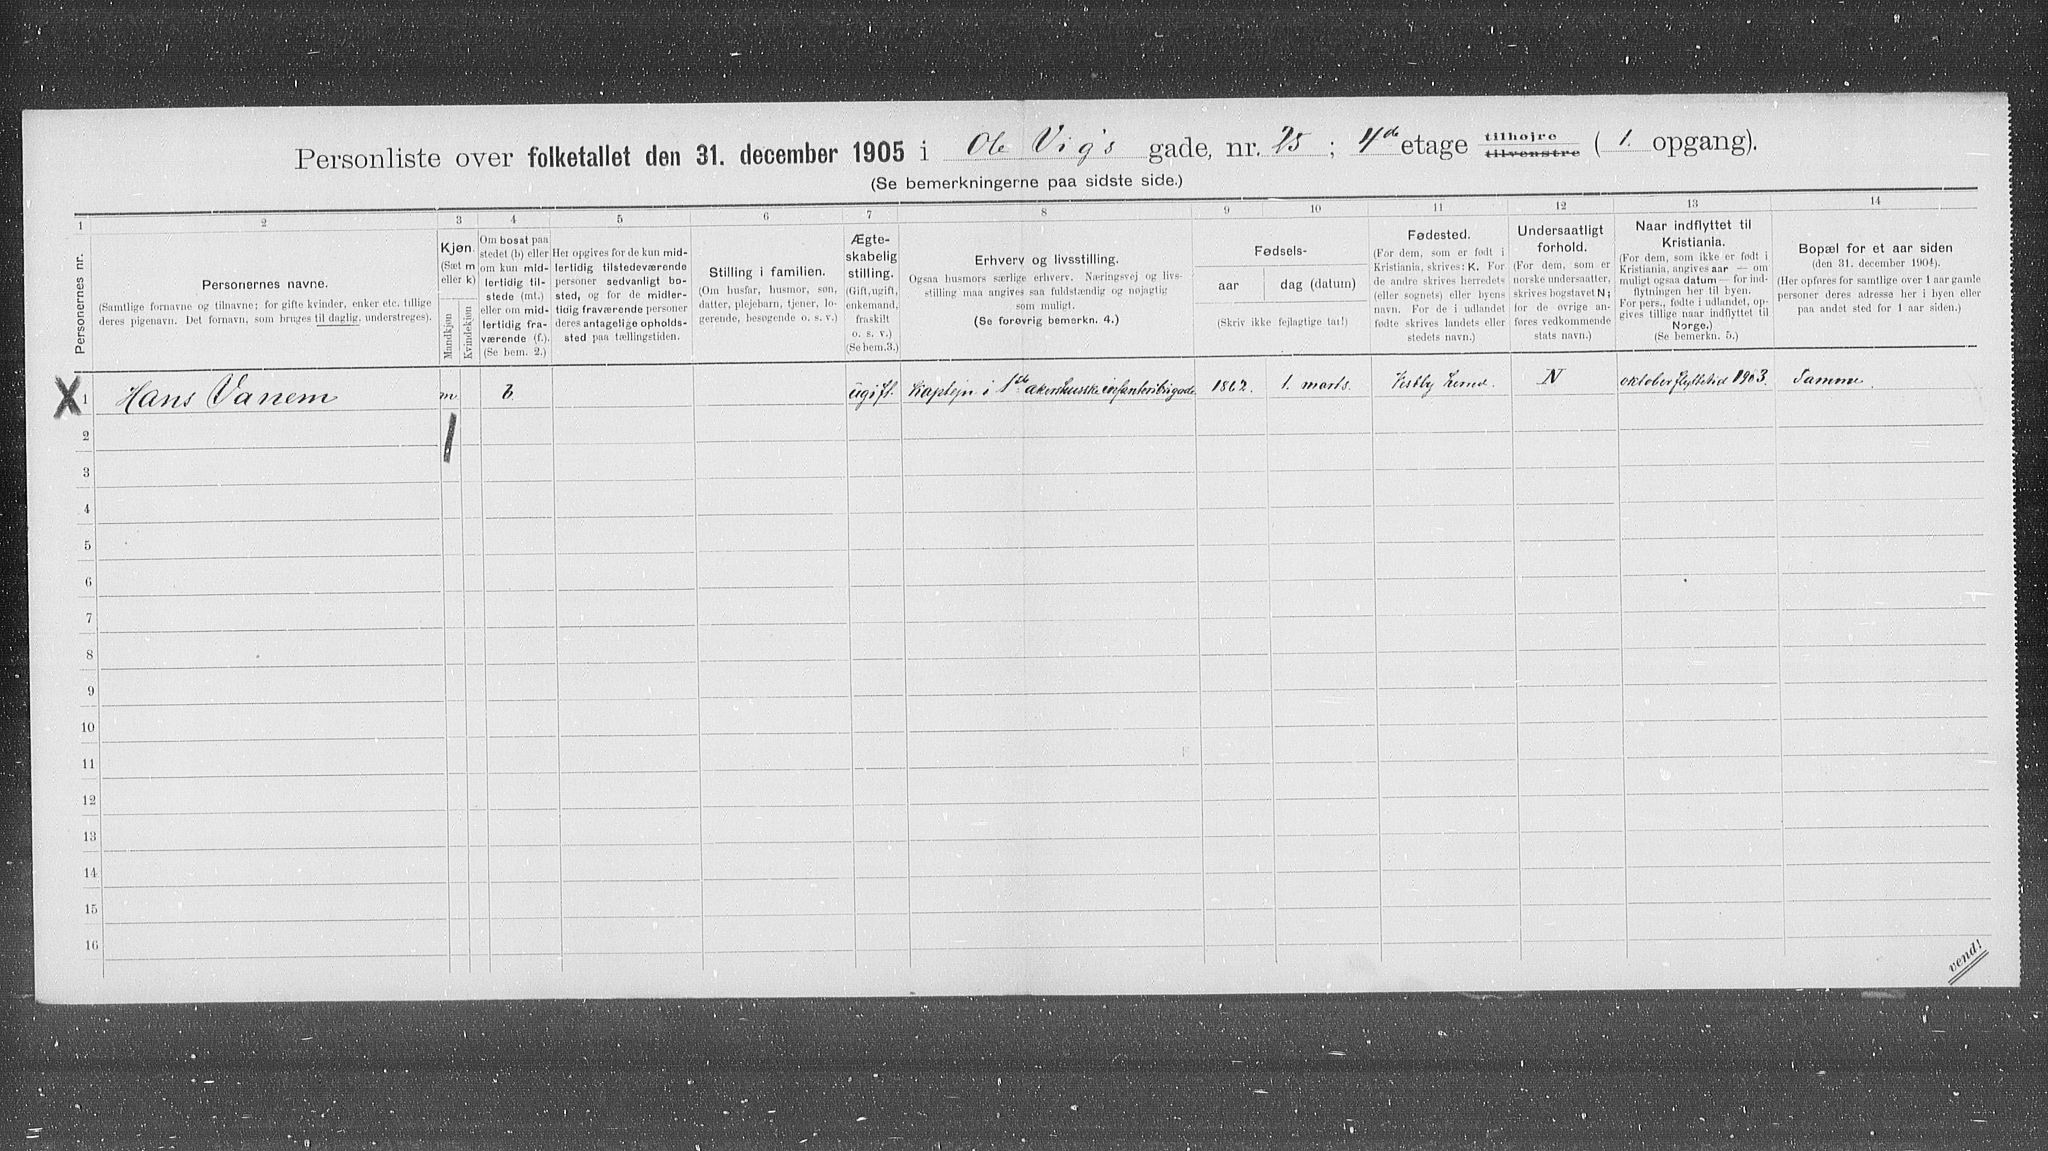 Personliste over folketallet den 31. december 1905 i Ole Vig's gade, nr. 25; 4de etage tilhøjre tilvenstre (1. opgang).
(Se bemerkningerne paa sidste side.)
1 2 3 4 5 6 7 8 9 10 11 12 13 14
Personernes nr.
Personernes navne.
(Samtlige fornavne og tilnavne; for gifte kvinder, enker etc. tillige
deres pigenavn. Det fornavn, som bruges til daglig, understreges).
Kjøn.
(Sæt m
eller k)
Mandkjøn
Kvindekjøn
Om bosat paa
stedet (b) eller
om kun mid-
lertidig til-
stede (mt.)
eller om mid-
lertidig fra-
værende (f.).
(Se bem. 2.)
Her opgives for de kun mid-
lertidig tilstedeværende
personer sedvanligt bo-
sted, og for de midler-
tidig fraværende personer
deres antagelige opholds-
sted paa tællingstiden.
Stilling i familien.
(Om husfar, husmor, søn,
datter, plejebarn, tjener, lo-
gerende, besøgende o. s. v.)
Ægte-
skabelig
stilling.
(Gift, ugift,
enkemand,
fraskilt
o. s. v.)
(Se bem.3.)
Erhverv og livsstilling.
Ogsaa husmors særlige erhverv. Næringsvej og livs-
stilling maa angives saa fuldstændig og nøjagtig
som muligt.
(Se forøvrig bemerkn. 4.)
Fødsels-
aar dag (datum)
(Skriv ikke fejlagtige tal!)
Fødested.
(For dem, som er født i
Kristiania, skrives: K. For
de andre skrives herredets
(eller sognets) eller byens
navn. For de i udlandet
fødte skrives landets eller
stedets navn.)
Undersaatligt
forhold.
(For dem, som er
norske undersaatter,
skrives bogstavet N;
for de øvrige an-
føres vedkommende
stats navn.)
Naar indflyttet til
Kristiania.
(For dem, som ikke er født i
Kristiania, angives aar — om
muligt ogsaa datum — for ind-
flytningen her til byen.
For pers., fødte i udlandet, op-
gives tillige naar indflyttet til
Norge.)
(Se bemerkn. 5.)
Bopæl for et aar siden
(den 31. december 1904).
(Her opføres for samtlige over 1 aar gamle
personer deres adresse her i byen eller
paa andet sted for 1 aar siden.)
X 1 Hans Vanem m b ugift. Kaptejn i 1ste akershuske infanteribrigade. 1862. 1. marts. Vestby N oktober flyttetid 1903. Samme.
2
3
4
5
6
7
8
9
10
11
12
13
14
15
16
vend!